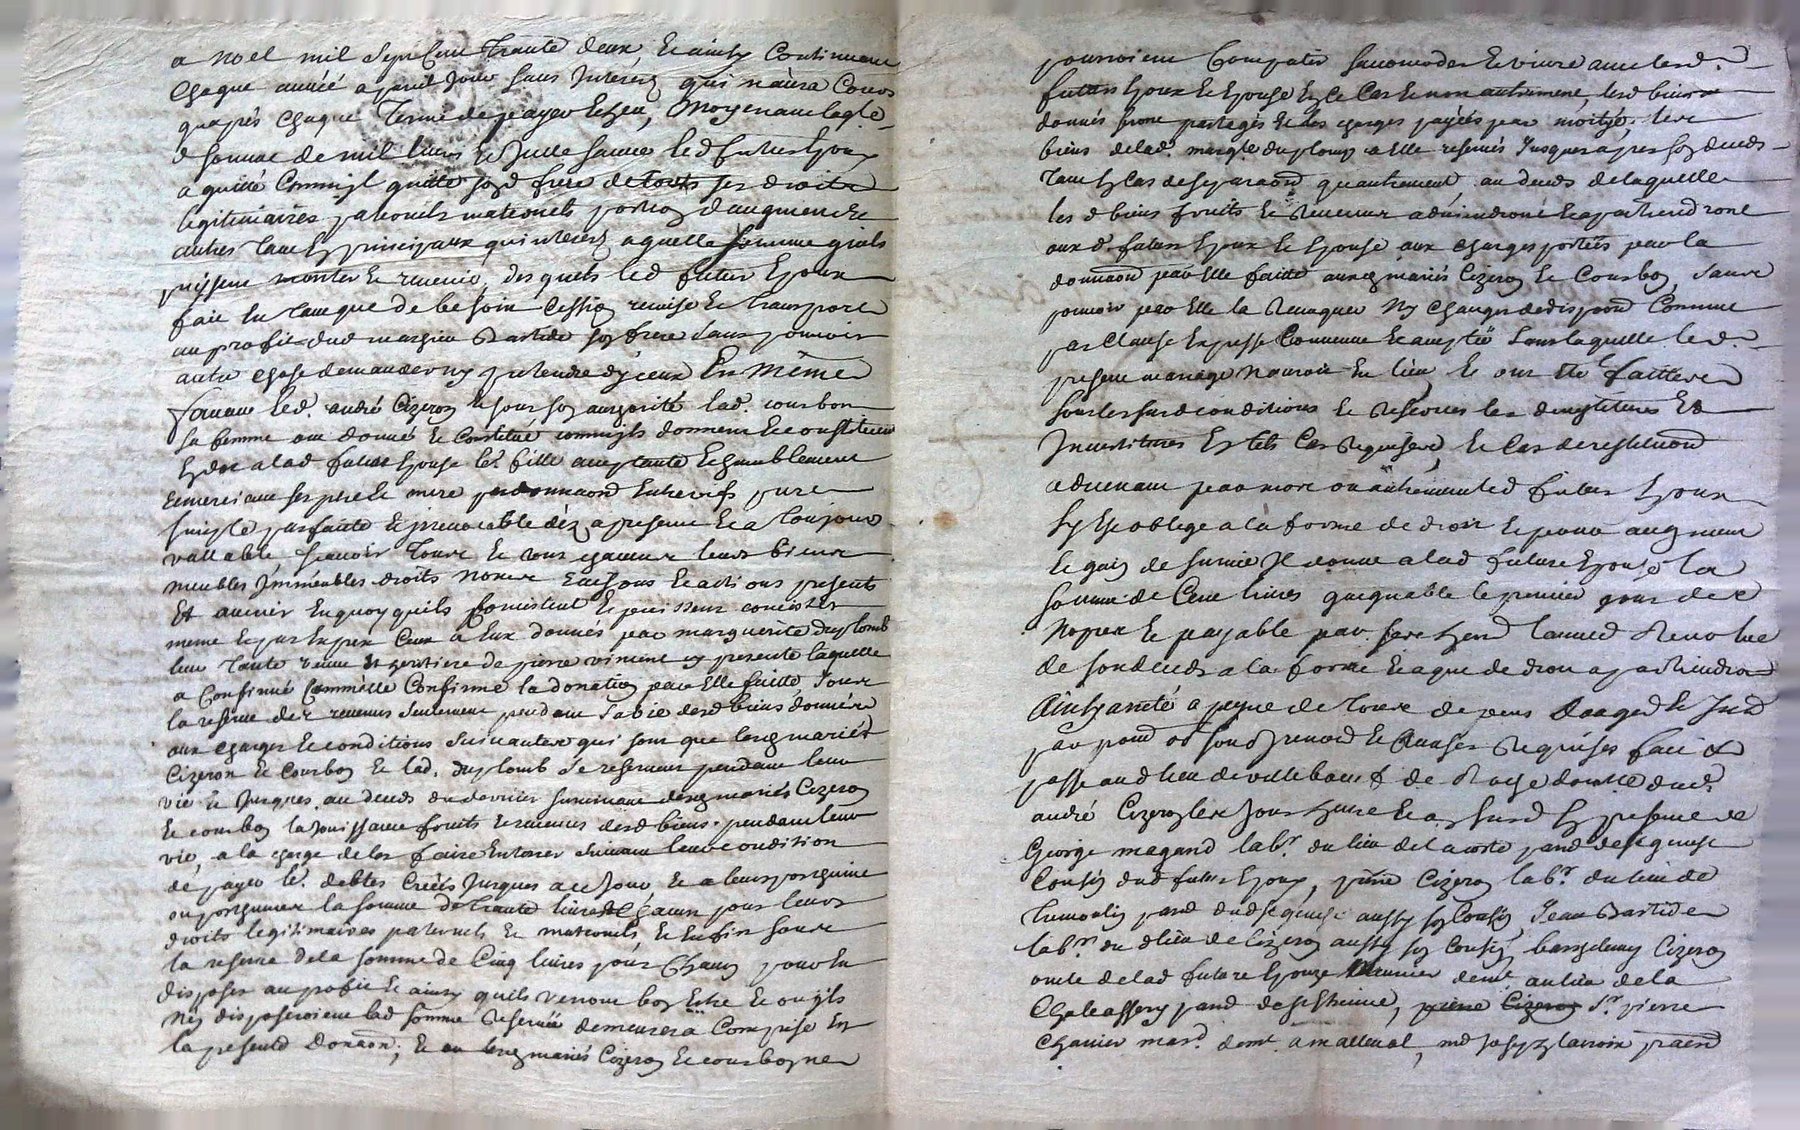 a Noel mil sept cent trante deux et ainsy Continuant
Chaque année a pareil Jour sans Interéz qui n'aura Cours
qu'aprés chaque Terme de payer Moyenant laqle
d somme de mil livres led futur Epoux
a quitté Comm'il quitte sozd frere de touts ses droits
legitimaires paternels maternels portion d'augment et
autres tant principaux qu'interez a quelle somme qu'ils
puissent monter et revenir, desquels led futur Epoux
fait en tant que de besoin Cession remise et transport
au profit dud mathieu Bastide soz frere sans pouvoir
autre chose demander ny pretendre d'yceux En même
faveur led. andré Cizeron et sous soz authorité lad. courbon
sa femme ont donné et Constitué comm'ils donnent et constituent
en dot a lad future Epouse leur fille acceptante et humblement
remerciant ses pere et mere par donnaond Entrevifs pure
simple parfaite et jrrevocable déz a present et a toujours
vallable scavoir Toux et uns chacuns leurs biens
meubles Immeubles droits Noms raisons et actions presents
Et avenir Enquoy quils Consistent et puissent consister
meme et par Exprex Ceux a Eux donnés par marguerite duplomb
leur Tante veuve et heritiere de pierre viment ey presente laquelle
a Confirmé Comm'elle Confirme la donation par Elle faitte, soux
la reserve dez revenus seulement pendant sa vie desd biens donnéz
aux charges et conditions suivantes qui sont que lesd mariéz
Cizeron et Courbon et lad. duplomb se reservent pendant leur
vie et Jusques au deceds du dernier survivant desd mariés Cizeron
et courbon la Jouissance fruits et revenus desd biens pendant leur
vie, a la charge de les faire Enterrer suivant leur condition
de payer les debtes Créés Jusques a ce Jour, et a leurs
la somme de trante livres chacun pour leurs
droits legitimaires paternels et maternels et Enfin soux
la reserve de la somme de Cinq livres pour Chacun pour En
disposer au profit et ainsy quils verront boz Estre et ou ils
n'en disposeroient lad somme reservée demeurera Comprise En
la presente Donaon; et ou lesd mariés Cizeron et courbon ne
pourroient Compatir saccomoder et vivre avec lesd.
futurs Epoux et Epouse En ce Cas et non autrement, lesd biens
donnés seront partagés et les charges payées par moityé, les
biens de lad. margte duplomp a Elle reservés Jusques apres soz deceds
tant En cas de separaond qu'autrement, au deceds de laquelle
les d biens fruits et revenus adviendront et apartiendront
aux d. futurs Epoux et Epouse aux charges portées par la
donnaond par Elle faitte auxd mariés Cizeron et Courbon, sans
pouvoir par Elle la revoquer Ny changer de dispoond Comme
par Clause Expresse Convenue et acceptée sans laquelle le d.
present mariage N'auroit En lieu et ont Eté faittes
sous lesusd conditions et reserves les devestitures Et
Investitures En tels Cas requises, et Cas de restituond
advenant par mort ou autrement led futur Epoux
sy Est oblige a la forme de droit et pour augment
et gain de survie Il donne a lad future Epouse la
somme de Cent livres gaignable le premier jour des
Nopces et payable par ses heres l'année revolue
de son deceds a la forme et a qui de droit apartiendra
Ainsy arreté a peyne de toux depens domages et Intd
par pond od sond renond et Clauses requises fait et
passé aud lieu de villebœuf de dud.
andré Cizeron les Jour heure et an susd En presence de
George magand labr. du lieu de la coste pard de st genest
Cousin dud futur Epoux, pierre Cizeron labr. du lieu de
pard dud st genest aussy soz Cousin, Jean Bastide
labr. du d lieu de Cizeron aussy soz Cousin, Cizeron
oncle de lad future Epouze demt. au lieu de la
pard de st Etienne, pierre Cizeron Sr. pierre
Chavier mard. demt a malleval, me Joseph lacroix praend